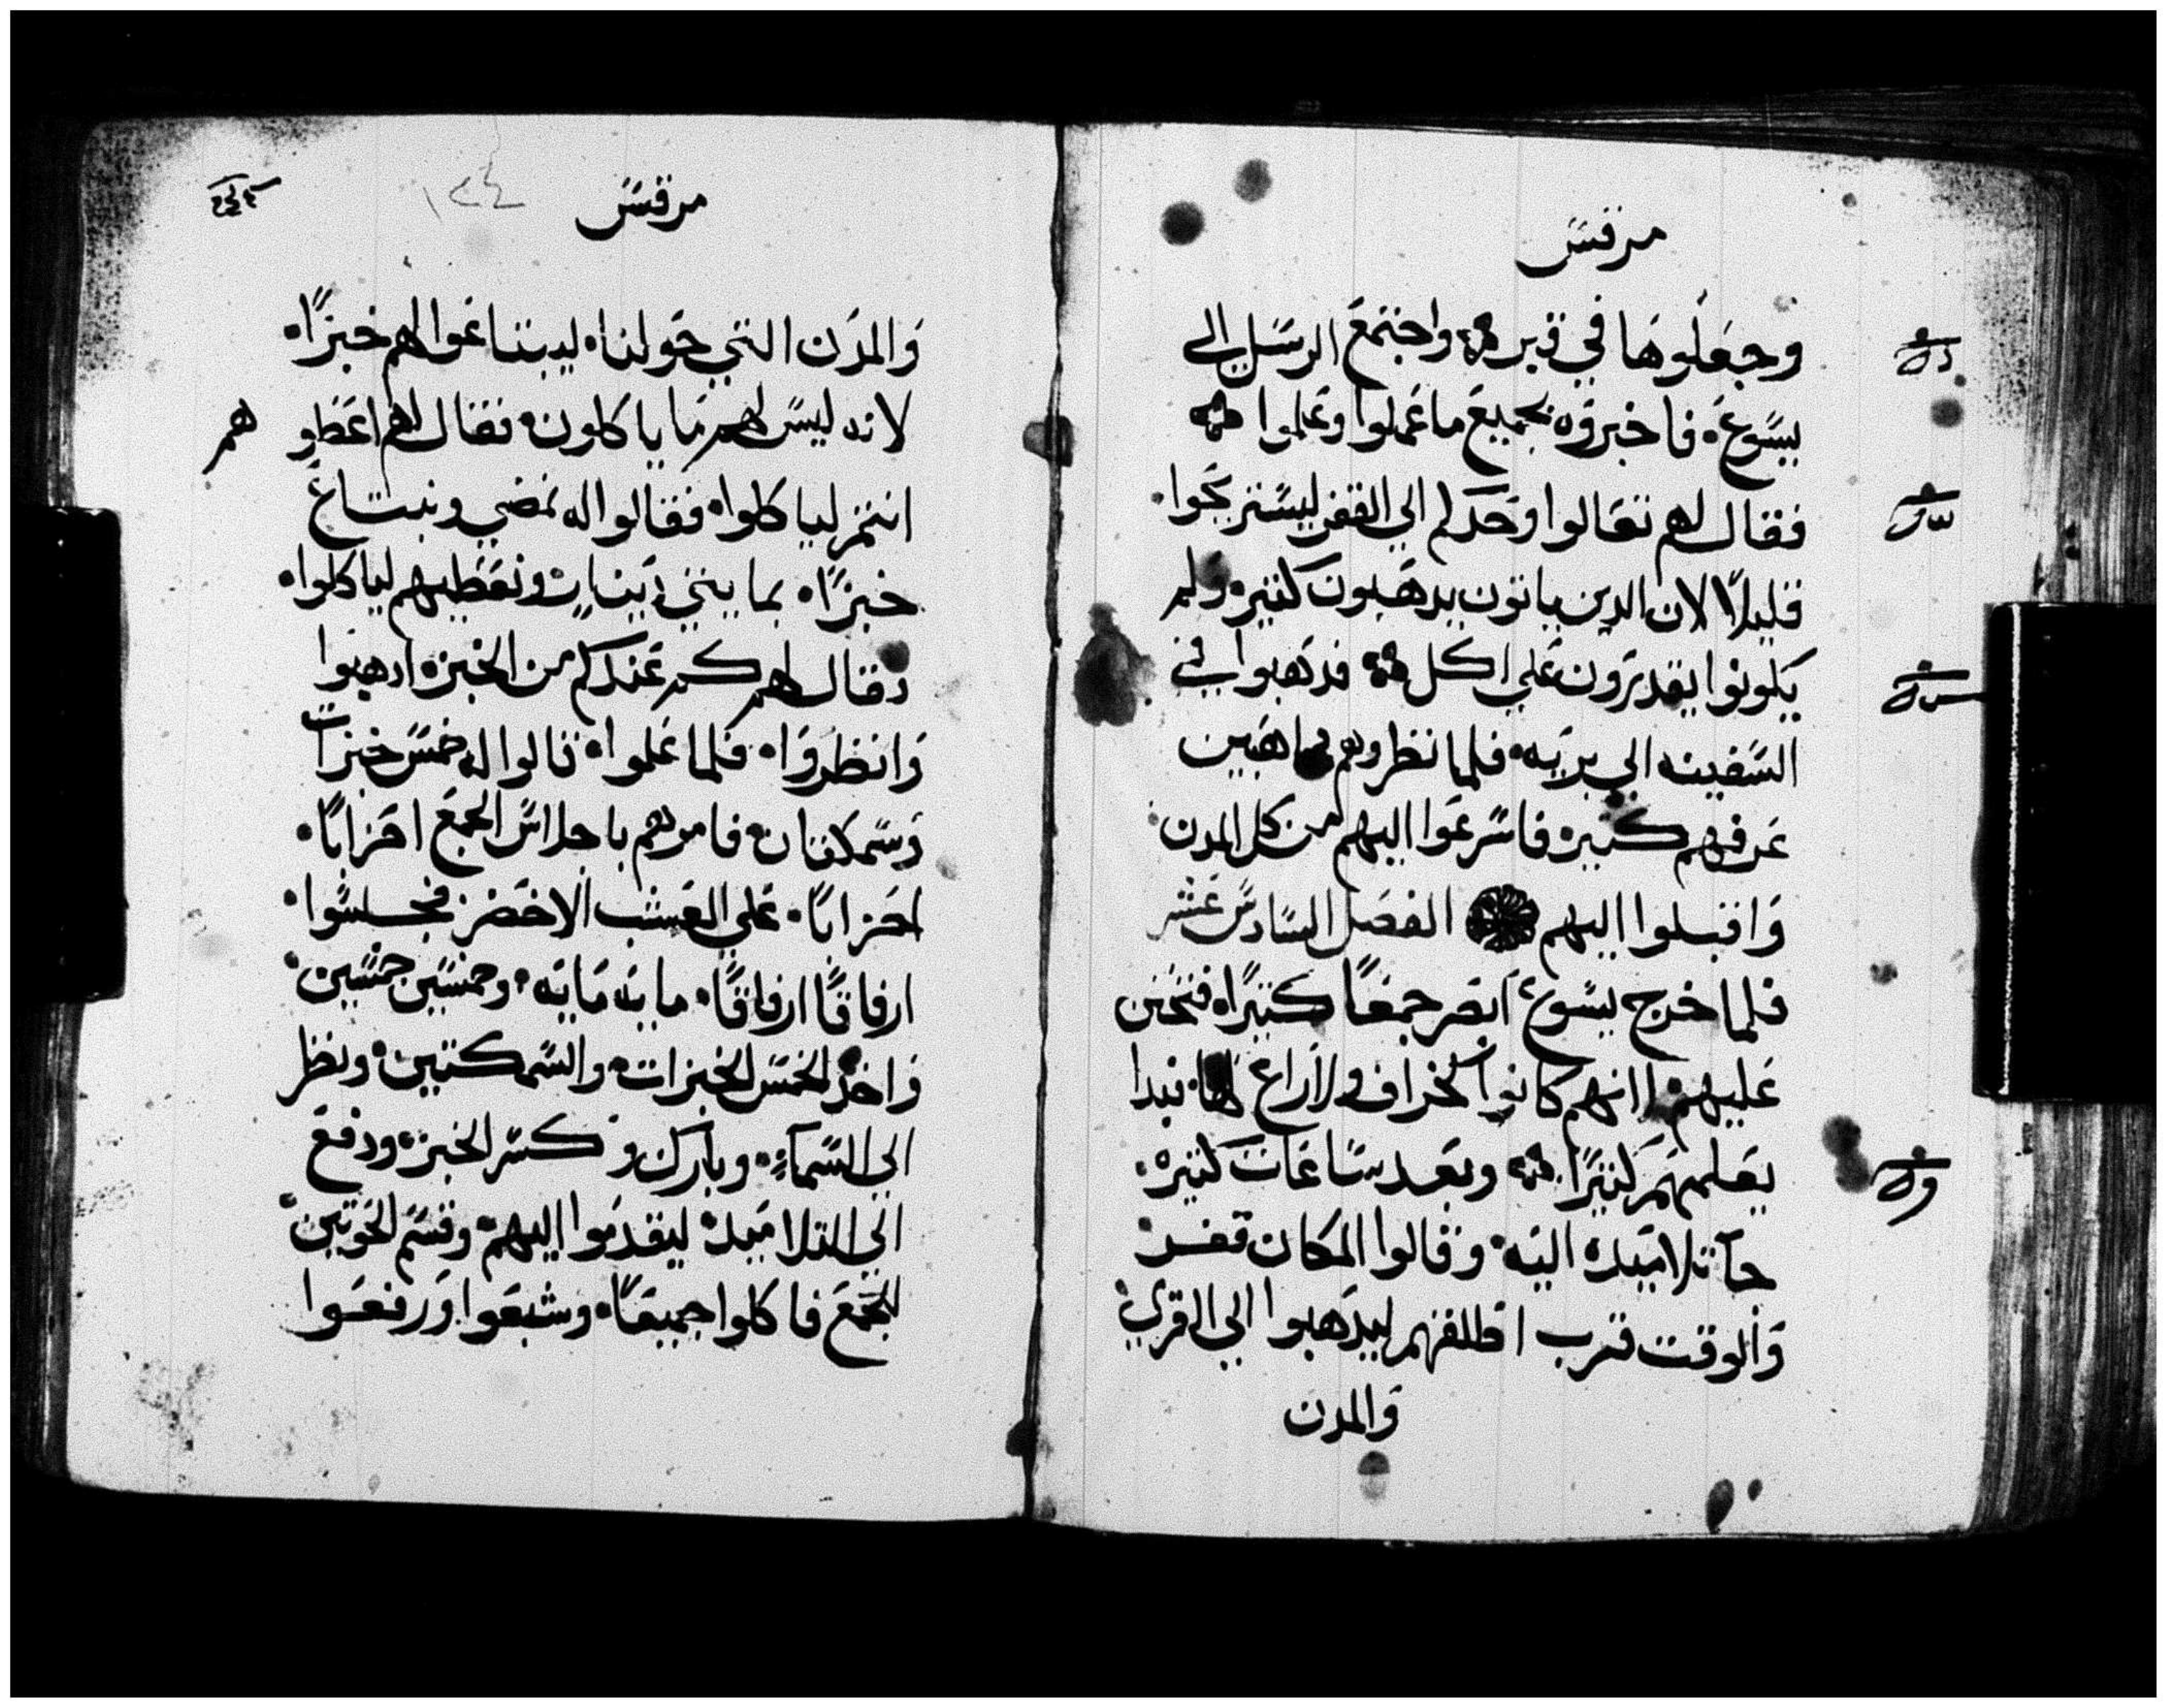 مرقس
وجعلوها في قبره واجتمع الرسل الي
يسوع فاخبروه بجميع ما عملوا وعلموا
فقال لهم تعالوا وحدكم الي القفر ليستريحوا
قليلاً لان الدين ياتون يدهبون كتيره ولم
يكونوا يقدرون علي اكل فدهبوا في
السفينه الي بريه فلما نظروهم داهبين
عرفهم كتيره فاسرعوا اليهم من كل المدن
واقبلوا اليهم الفصل السادس عشر
فلما خرج يسوع ابصر جمعاً كتيراً فتحنن
عليهم انهم كانوا كخراف ولا راع لها فبدا
يعلمهم كتيراً وبعد ساعات كتيره
جآ تلاميده اليه وقالوا المكان قفر
والوقت قرب اطلقهم ليدهبوا الي القري
والمدن
مرقس
١٢٤
والمدن التي حولنا ليبتاعوا لهم خبزاً
لانه ليس لهم ما ياكلون فقال لهم اعطوهم
انتم لياكلوا فقالوا له نمضي ونبتاع
خبزاً بمايتي دينار ونعطيهم لياكلوا
فقال لهم كم عندكم من الخبز ادهبوا
وانظروا فلما علموا قالوا له خمس خبزات
وسمكتان فامرهم باجلاس الجمع احزاباً
احزاباً علي العشب الاخضر فجلسوا
ارفاقاً ارفاقاً مايه مايه وخمسين خمسين
واخد الخمس الخبزات والسمكتين ونظر
الي السمآء وبارك وكسر الخبز ودفع
الي التلاميد ليقدموا اليهم وقسم الحوتين
للجمع فاكلوا جميعاً وشبعوا ورفعوا